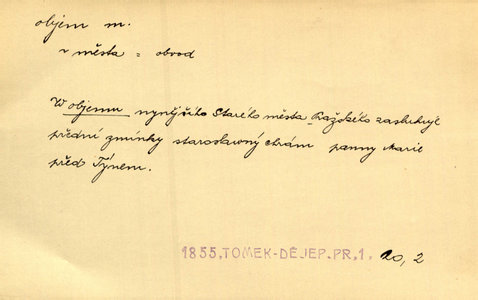 objem m.
v města = obvod
W objemu nynějšího Starého města Pražského zasluhuje
přední zmínky staroslawný chrám panny Marie
před Týnem.
1855, TOMEK-DĚJEP.PR,1, 20, 2